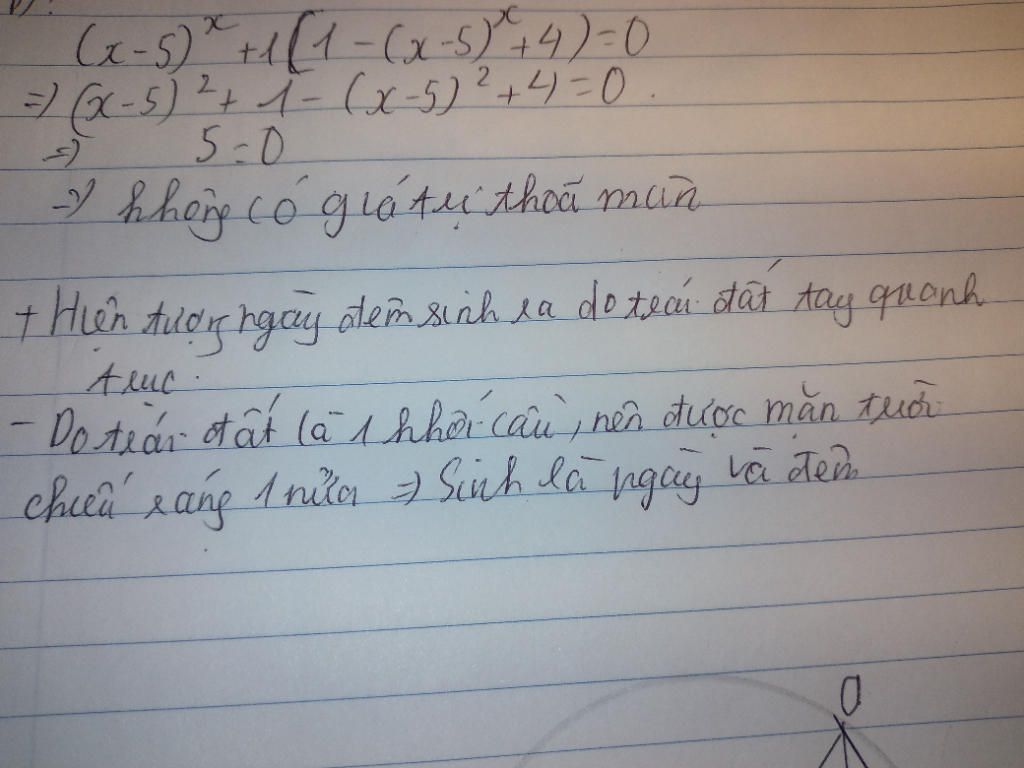 (x-5)^x +1(1-(x-5)^x+4)=0
=> (x-5)^2 + 1 - (x-5)^2 +4)=0.
=> 5=0
=> không có giá trị thoã mãn
+ Hiện tượng ngày đêm sinh ra do trái đất tay quanh
trục.
- Do trái đất là 1 khối cầu, nên được mặn trười
chiếu sáng 1 nửa => Sinh là ngày và đêm
O